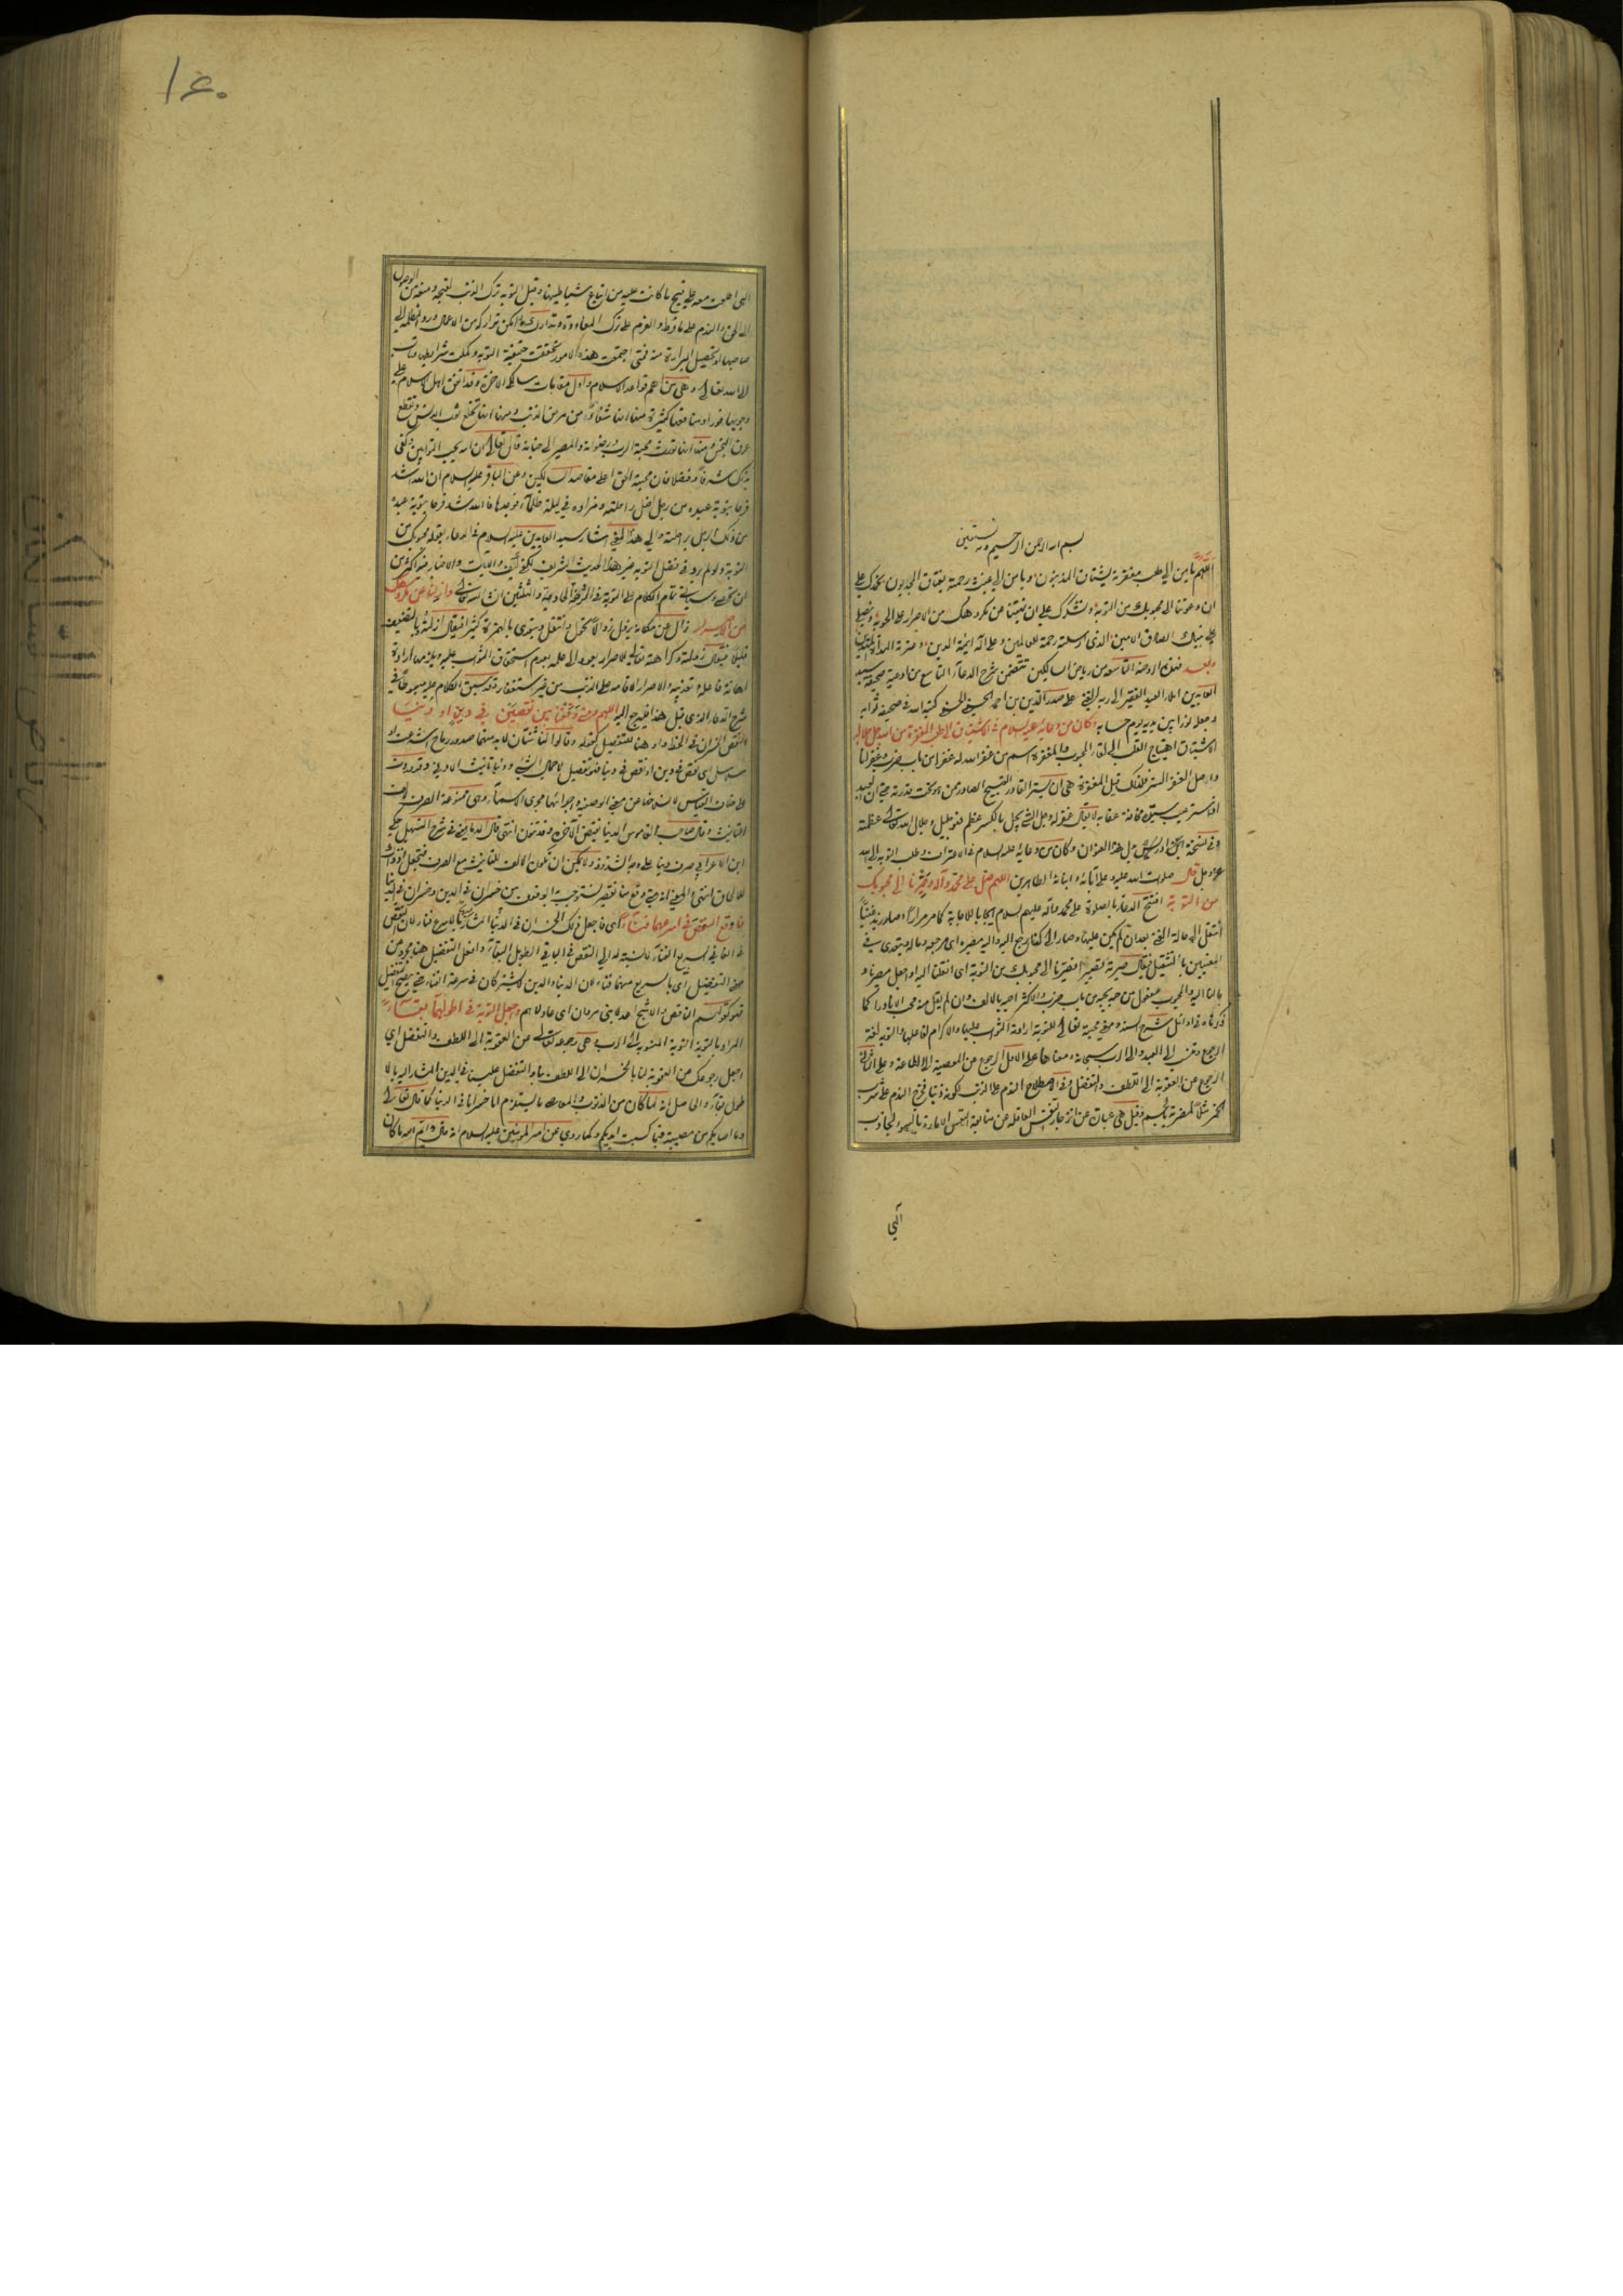 بسم الله الرحمن الرحيم وبه نستعين
اللهم يا من الى طلب مغفرته يشتاق المذنبون ويا من الى غيث رحمته يتاق المجدبون نحمدك على
ان دعوتنا الى محبوبك من التوبة ونشكرك على ان نبهتنا عن مكروهك من الاصرار على الحوبة ونصلي
على نبيك الصادق الامين الذي ارسلته رحمة للعالمين وعلى آله ائمة الدين
وبعد فهذه الروضة التاسعة من رياض السالكين تتضمن شرح الدعاء التاسع من ادعية صحيفة سيد
العابدين املاء العبد الفقير الى ربه الغني علي صدر الدين بن احمد الحسيني الحسني كتبه الله في صحيفة ثوابه
وجعله نورا بين يديه يوم حسابه وكان من دعائه عليه السلام في الاشتياق الى طلب المغفرة من الله جل جلاله
الاشتياق اهتياج القلب الى لقاء المحبوب والمغفرة اسم من غفر الله له غفرا من باب ضرب وغفرانا
واصل الغفر الستر فلذلك قيل المغفرة هي ان يستر القادر القبيح الصادر ممن هو تحت قدرته حتى ان العبد
اذا ستر عيب سيده مخافة عقابه لا يقال غفر له وجل الشئ يجل بالكسر عظم فهو جليل وجلال الله تعالى عظمته
وفي نسخة ابن ادريس بدل هذا العنوان وكان من دعائه عليه السلام في الاعتراف وطلب التوبة الى الله
عز وجل قال صلوات الله عليه وعلى آبائه وابنائه الطاهرين اللهم صل على محمد وآله وصيرنا الى محبوبك
من التوبة افتتح الدعاء بالصلوة على محمد وآله عليهم السلام ايجابا للاجابة كما مر مرارا وصار زيد غنيا
انتقل الى حالة الغنى بعد ان لم يكن عليها وصار الى كذا رجع اليه واليه مصيره اى مرجعه وماله ويتعدى في
المعنيين بالتثقيل فيقال صيرته تصييرا فصيرنا الى محبوبك من التوبة اى انقلنا اليه او اجعل مصيرنا و
مالنا اليه والمحبوب مفعول من حبه يحبه من باب ضرب والاكثر احبه بالالف وان لم يقل منه محب الا نادرا كما
ذكرناه في اوائل شرح السند ومعنى محبته تعالى للتوبة ارادة الثواب عليها والاكرام لفاعلها والتوبة لغة
الرجوع وتنسب الى العبد والى الرب سبحانه ومعناها على الاول الرجوع عن المعصية الى الطاعة وعلى الثاني
الرجوع عن العقوبة الى اللطف والتفضل وفي الاصطلاح الندم على الذنب لكونه ذنبا فخرج الندم على شرب
الخمر مثلا لمضرته بالجسم وقيل هي عبارة عن انزجار النفس العاقلة عن متابعة النفس الامارة بالسوء لجاذب
الهي
١٤٠
الهي اطلعت معه على قبح ما كانت عليه من اتباع شياطينها وقيل التوبة ترك الذنب لقبحه ومنعه من الوصول
الى الحق والندم على ما فرط والعزم على ترك المعاودة وتدارك ما امكن تداركه من الاعمال ورد الظلامة الى
صاحبها او تحصيل البراءة منه فمتى اجتمعت هذه الامور تحققت حقيقة التوبة وكملت شرايطها وتاب
الى الله تعالى وهي من اهم قواعد الاسلام واول مقامات سالكي الآخرة وقد اتفق اهل الاسلام على
وجوبها فورا ومنافعها كثيرة منها انها شفاء من مرض الذنب ومنها انها تخلع ثوب الدنس وتقطع
عرق النجس ومنها انها تورث محبة الرب ورضوانه والمصير الى جنابه قال تعالى ان الله يحب التوابين وكفى
بذلك شرفا وفضلا فان محبة الحق اعلى مقاصد السالكين وعن الباقر عليه السلام ان الله اشد
فرحا بتوبة عبده من رجل اضل راحلته ومزاده في ليلة ظلماء فوجدها فالله اشد فرحا بتوبة عبده
من ذلك الرجل براحلته والى هذا المعنى اشار سيد العابدين عليه السلام في الدعاء بقوله محبوبك من
التوبة ولو لم يرد في فضل التوبة غير هذا الحديث الشريف لكفى كيف والآيات والاخبار فيه اكثر من
ان تحصى وسياتي تمام الكلام على التوبة في الروضة الحادية والثلثين ان شاء الله تعالى وازلنا عن مكروهك
من الاصرار زال عن مكانه يزول زوالا تحول وانتقل ويتعدى بالهمزة كثيرا فيقال ازلته وبالتضعيف
قليلا فيقال زولته وكراهته تعالى للاصرار يعود الى علمه بعدم استحقاق الثواب عليه ويلزمه ارادة
اهانة فاعله وتعذيبه والاصرار الاقامة على الذنب من غير استغفار وقد سبق الكلام عليه مبسوطا في
شرح الدعاء الذي قبل هذا فليرجع اليه اللهم ومتى وقفنا بين نقصين في دين او دنيا
النقص الخسران في الحظ واو هنا للتفصيل كقوله وقالوا لنا ثنتان لا بد منهما صدور رماح اشرعت او
سلاسل اى نقص في دين او نقص في دنيا فهو تفصيل لاجمال التثنية ودنيا تانيث الادنى وقد وردت
على خلاف القياس لانسلاخها عن معنى الوصفية واجرائها مجرى الاسماء وهي ممنوعة الصرف لالف
التانيث وقال صاحب القاموس الدنيا نقيض الآخرة وقد تنون انتهى قال الدماميني في شرح التسهيل حكى
ابن الاعرابي صرف دنيا على وجه الشذوذ ولا يمكن ان تكون الالف للتانيث مع الصرف فتجعل اذ ذاك
للالحاق انتهى والمعنى انه متى وقع منا تقصير نستوجب به الوقوف بين خسران في الدين وخسران في الدنيا
فاوقع النقص في اسرعهما فناء اى فاجعل ذلك الخسران في الدنيا المشار اليها باسرع فناء لان النقص
في الفاني السريع الفناء بالنسبة الى النقص في الباقي الطويل البقاء وافعل التفضيل هنا مجرد عن
معنى التفضيل اى بالسريع منهما فناء لان الدنيا والدين لا يشتركان في سرعة الفناء حتى يصح التفضيل
فهو كقولهم الناقص والاشج اعدلا بني مروان اى عادلاهم واجعل التوبة في اطولهما بقاء
المراد بالتوبة التوبة المنسوبة الى الرب وهي رجوعه تعالى عن العقوبة الى اللطف والتفضل اى
اجعل رجوعك عن العقوبة لنا بالخسران الى اللطف بنا والتفضل علينا في الدين المشار اليه بالا
طول بقاء والحاصل انه لما كان من الذنوب والمعاصي ما يستلزم اما خسرانا في الدنيا كما قال تعالى
وما اصابكم من مصيبة فبما كسبت ايديكم وكما روي عن امير المؤمنين عليه السلام انه قال وايم الله ما كان